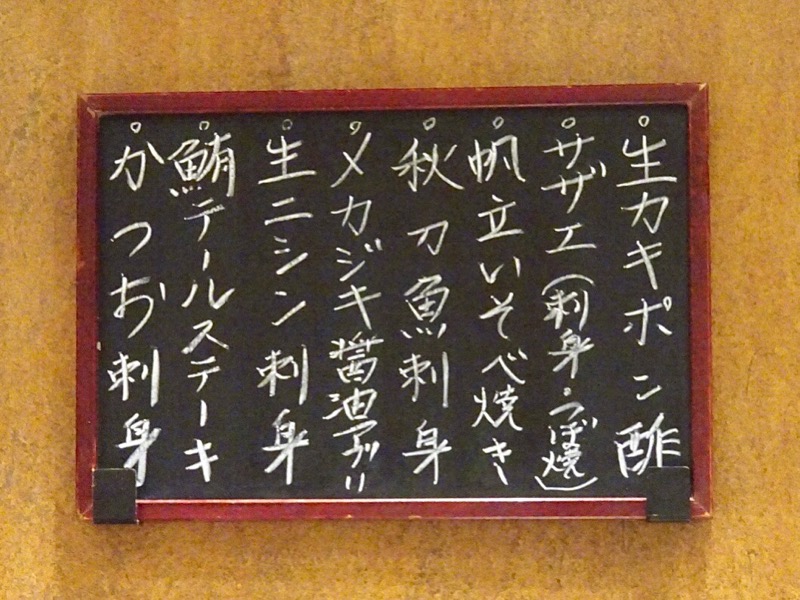 ○生カキポン酢
○サザエ(刺身・つぼ焼)
○帆立いそべ焼き
○秋刀魚刺身
○メカジキ醤油アブリ
○生ニシン刺身
○鮪テールステーキ
○かつお刺身